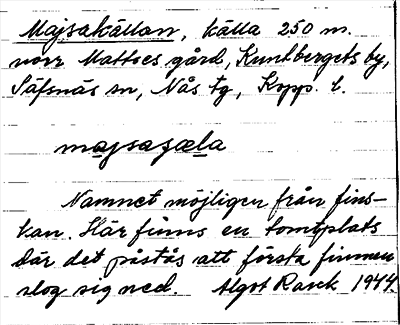 Majsakällan, källa 250 m.
norr Mattses gård, Kunlbergets by,
Säfsnäs sn, Nås tg, Kopp. l.
majsaɕæla
Namnet möjligen från fins-
kan. Här finns en tomtplats
där det påstås att första finnen
slog sig ned. Algot Rask 1944.